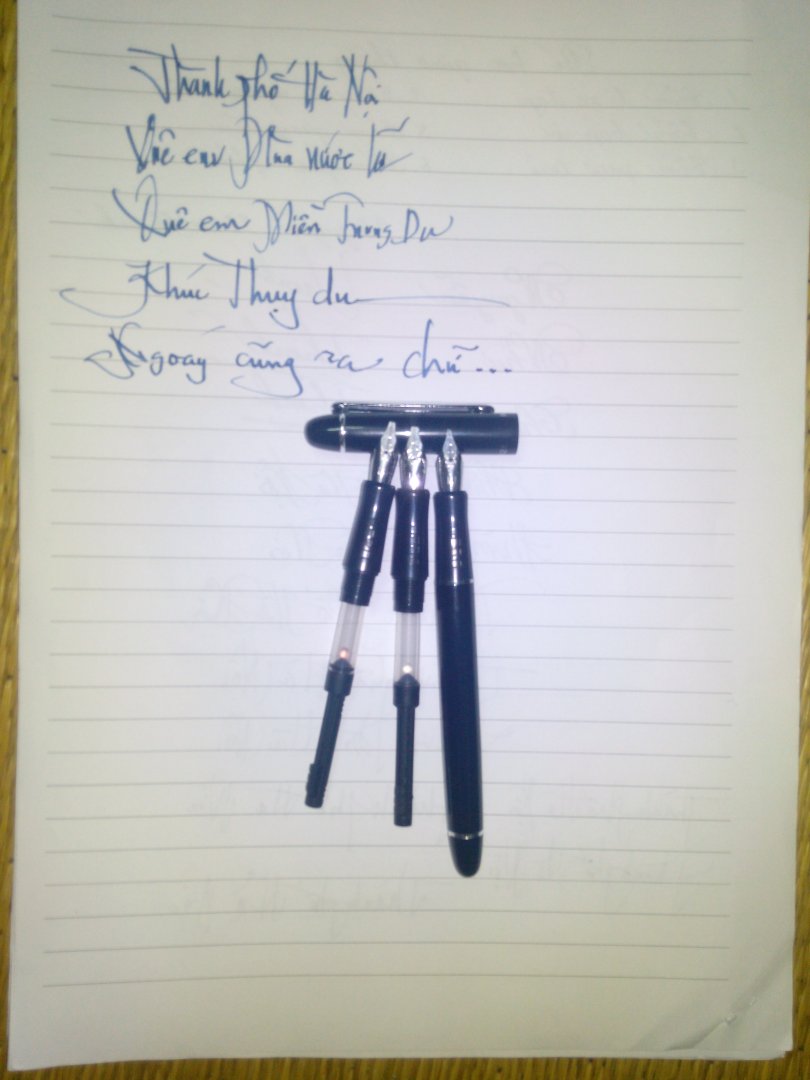 Thành phố Hà Nội
Quê em Mùa nước lũ
Quê em Miền Trung Du
Khúc Thụy du
Ngoáy cũng ra chữ...